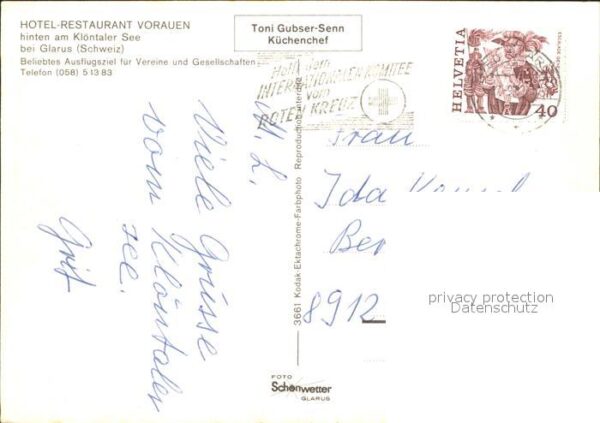 HOTEL-RESTAURANT VORAUEN
hinten am Klöntaler See
bei Glarus (Schweiz)
Beliebtes Ausflugsziel für Vereine und Gesellschaften
Telefon (058) 5 13 83
Toni Gubser-Senn
Küchenchef
Helft dem
INTERNATIONALEN KOMITEE
vom
ROTEN KREUZ
HELVETIA
40
M. L.
Viele Grüsse
vom Klöntaler
see.
Grit
Frau
Ida
Ber
8912
3661 Kodak-Ektachrome-Farbphoto Reproduction interdite
FOTO
Schönwetter
GLARUS
privacy protection
Datenschutz